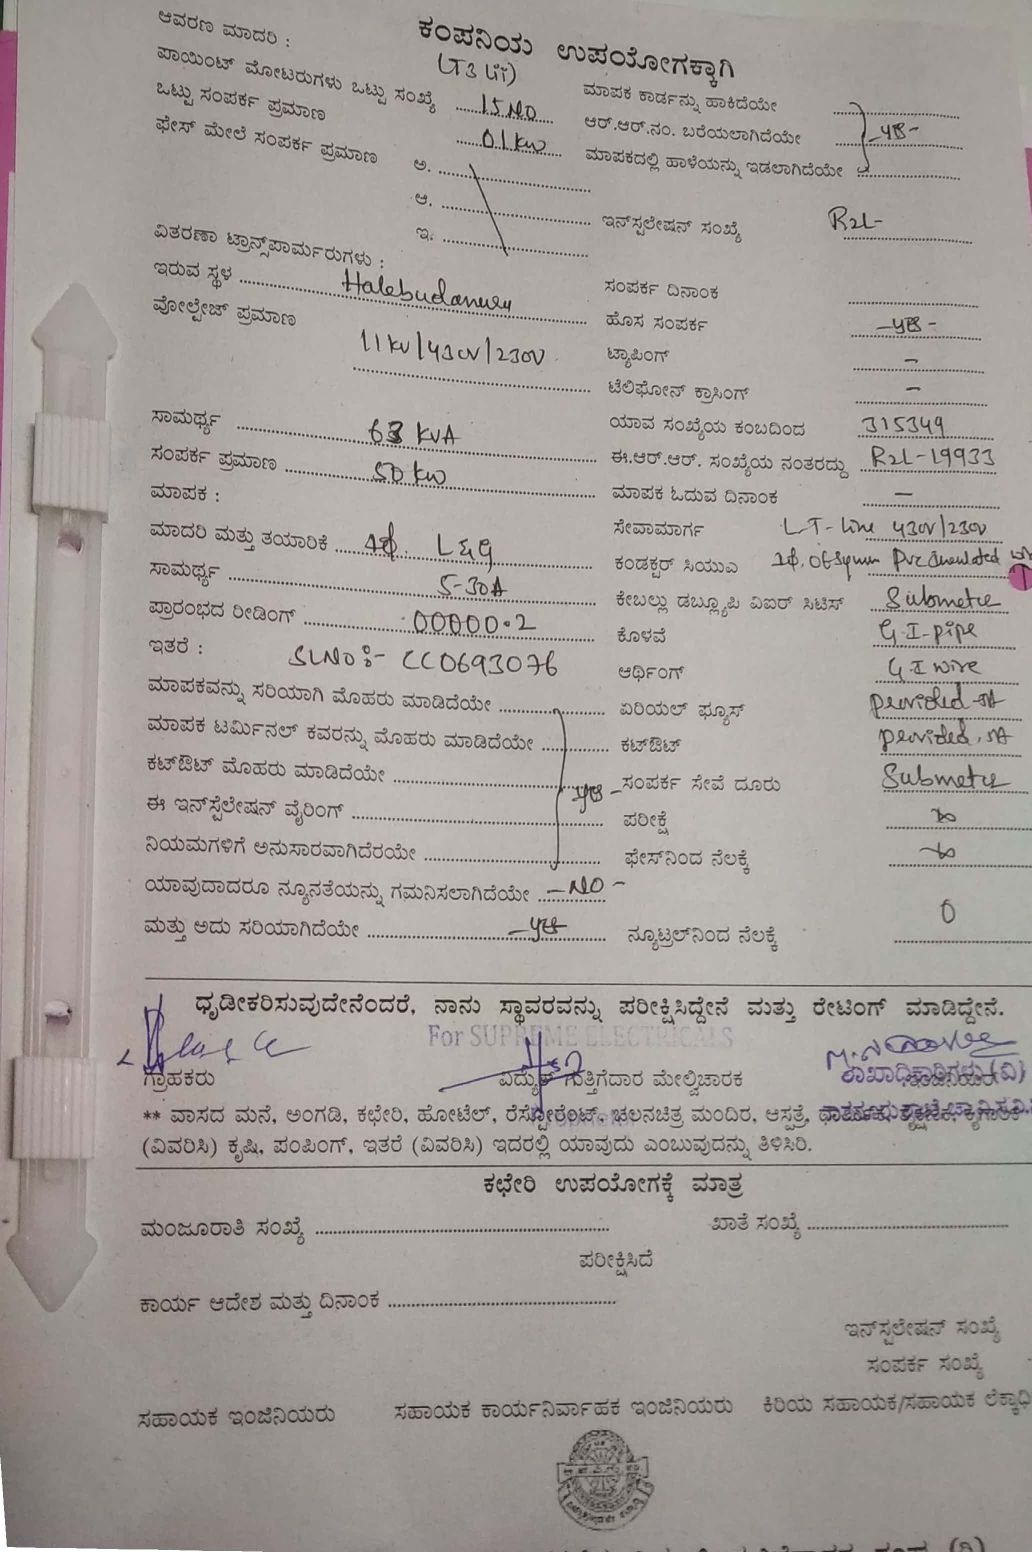 ಕಂಪನಿಯ ಉಪಯೋಗಕ್ಕಾಗಿ
ಆವರಣ ಮಾದರಿ :
ಪಾಯಿಂಟ್ ಮೋಟರುಗಳು ಒಟ್ಟು ಸಂಖ್ಯೆ 15 NO
ಮಾಪಕ ಕಾರ್ಡನ್ನು ಹಾಕಿದೆಯೇ
ಒಟ್ಟು ಸಂಪರ್ಕ ಪ್ರಮಾಣ 01 KW
ಆರ್.ಆರ್.ನಂ. ಬರೆಯಲಾಗಿದೆಯೇ
ಫೇಸ್ ಮೇಲೆ ಸಂಪರ್ಕ ಪ್ರಮಾಣ ಅ.
ಮಾಪಕದಲ್ಲಿ ಹಾಳೆಯನ್ನು ಇಡಲಾಗಿದೆಯೇ
ಆ.
ಇನ್‌ಸ್ಪಲೇಷನ್ ಸಂಖ್ಯೆ R2L-
ಇ.
ವಿತರಣಾ ಟ್ರಾನ್ಸ್‌ಪಾರ್ಮರುಗಳು :
ಇರುವ ಸ್ಥಳ
ಸಂಪರ್ಕ ದಿನಾಂಕ
ವೋಲ್ಟೇಜ್ ಪ್ರಮಾಣ 11KV/430V/230V
ಹೊಸ ಸಂಪರ್ಕ
ಟ್ಯಾಪಿಂಗ್ -
ಟೆಲಿಫೋನ್ ಕ್ರಾಸಿಂಗ್ -
ಸಾಮರ್ಥ್ಯ 63 KVA
ಯಾವ ಸಂಖ್ಯೆಯ ಕಂಬದಿಂದ 315349
ಸಂಪರ್ಕ ಪ್ರಮಾಣ 50 KW
ಈ.ಆರ್.ಆರ್. ಸಂಖ್ಯೆಯ ನಂತರದ್ದು R2L-19933
ಮಾಪಕ :
ಮಾಪಕ ಓದುವ ದಿನಾಂಕ -
ಮಾದರಿ ಮತ್ತು ತಯಾರಿಕೆ 1ϕ L&G
ಸೇವಾಮಾರ್ಗ LT-Line 430V/230V
ಸಾಮರ್ಥ್ಯ 5-30A
ಕಂಡಕ್ಟರ್ ಸಿಯುಎ
ಪ್ರಾರಂಭದ ರೀಡಿಂಗ್ 00000.2
ಕೇಬಲ್ಲು ಡಬ್ಲ್ಯೂಪಿ ವಿಐರ್ ಸಿಟಿಸ್
ಇತರೆ : SLNO:- CC0693076
ಕೊಳವೆ G-I-pipe
ಆರ್ಥಿಂಗ್ G.I wire
ಮಾಪಕವನ್ನು ಸರಿಯಾಗಿ ಮೊಹರು ಮಾಡಿದೆಯೇ
ಏರಿಯಲ್ ಫ್ಯೂಸ್
ಮಾಪಕ ಟರ್ಮಿನಲ್ ಕವರನ್ನು ಮೊಹರು ಮಾಡಿದೆಯೇ
ಕಟ್‌ಔಟ್
ಕಟ್‌ಔಟ್ ಮೊಹರು ಮಾಡಿದೆಯೇ
ಸಂಪರ್ಕ ಸೇವೆ ದೂರು
ಈ ಇನ್‌ಸ್ಪೆಲೇಷನ್ ವೈರಿಂಗ್
ಪರೀಕ್ಷೆ ∞
ನಿಯಮಗಳಿಗೆ ಅನುಸಾರವಾಗಿದೆರಯೇ
ಫೇಸ್‌ನಿಂದ ನೆಲಕ್ಕೆ ∞
ಯಾವುದಾದರೂ ನ್ಯೂನತೆಯನ್ನು ಗಮನಿಸಲಾಗಿದೆಯೇ -NO-
ಮತ್ತು ಅದು ಸರಿಯಾಗಿದೆಯೇ
ನ್ಯೂಟ್ರಲ್‌ನಿಂದ ನೆಲಕ್ಕೆ 0
ಧೃಡೀಕರಿಸುವುದೇನೆಂದರೆ, ನಾನು ಸ್ಥಾವರವನ್ನು ಪರೀಕ್ಷಿಸಿದ್ದೇನೆ ಮತ್ತು ರೇಟಿಂಗ್ ಮಾಡಿದ್ದೇನೆ.
For SUPREME ELECTRICALS
ಗ್ರಾಹಕರು ವಿದ್ಯುತ್ ಗುತ್ತಿಗೆದಾರ ಮೇಲ್ವಿಚಾರಕ
** ವಾಸದ ಮನೆ, ಅಂಗಡಿ, ಕಛೇರಿ, ಹೋಟೆಲ್, ರೆಸ್ಟೋರೆಂಟ್, ಚಲನಚಿತ್ರ ಮಂದಿರ, ಆಸ್ಪತ್ರೆ,
(ವಿವರಿಸಿ) ಕೃಷಿ, ಪಂಪಿಂಗ್, ಇತರೆ (ವಿವರಿಸಿ) ಇದರಲ್ಲಿ ಯಾವುದು ಎಂಬುವುದನ್ನು ತಿಳಿಸಿರಿ.
ಕಛೇರಿ ಉಪಯೋಗಕ್ಕೆ ಮಾತ್ರ
ಮಂಜೂರಾತಿ ಸಂಖ್ಯೆ
ಖಾತೆ ಸಂಖ್ಯೆ
ಪರೀಕ್ಷಿಸಿದೆ
ಕಾರ್ಯ ಆದೇಶ ಮತ್ತು ದಿನಾಂಕ
ಇನ್‌ಸ್ಪಲೇಷನ್ ಸಂಖ್ಯೆ
ಸಂಪರ್ಕ ಸಂಖ್ಯೆ
ಸಹಾಯಕ ಇಂಜಿನಿಯರು ಸಹಾಯಕ ಕಾರ್ಯನಿರ್ವಾಹಕ ಇಂಜಿನಿಯರು ಕಿರಿಯ ಸಹಾಯಕ/ಸಹಾಯಕ